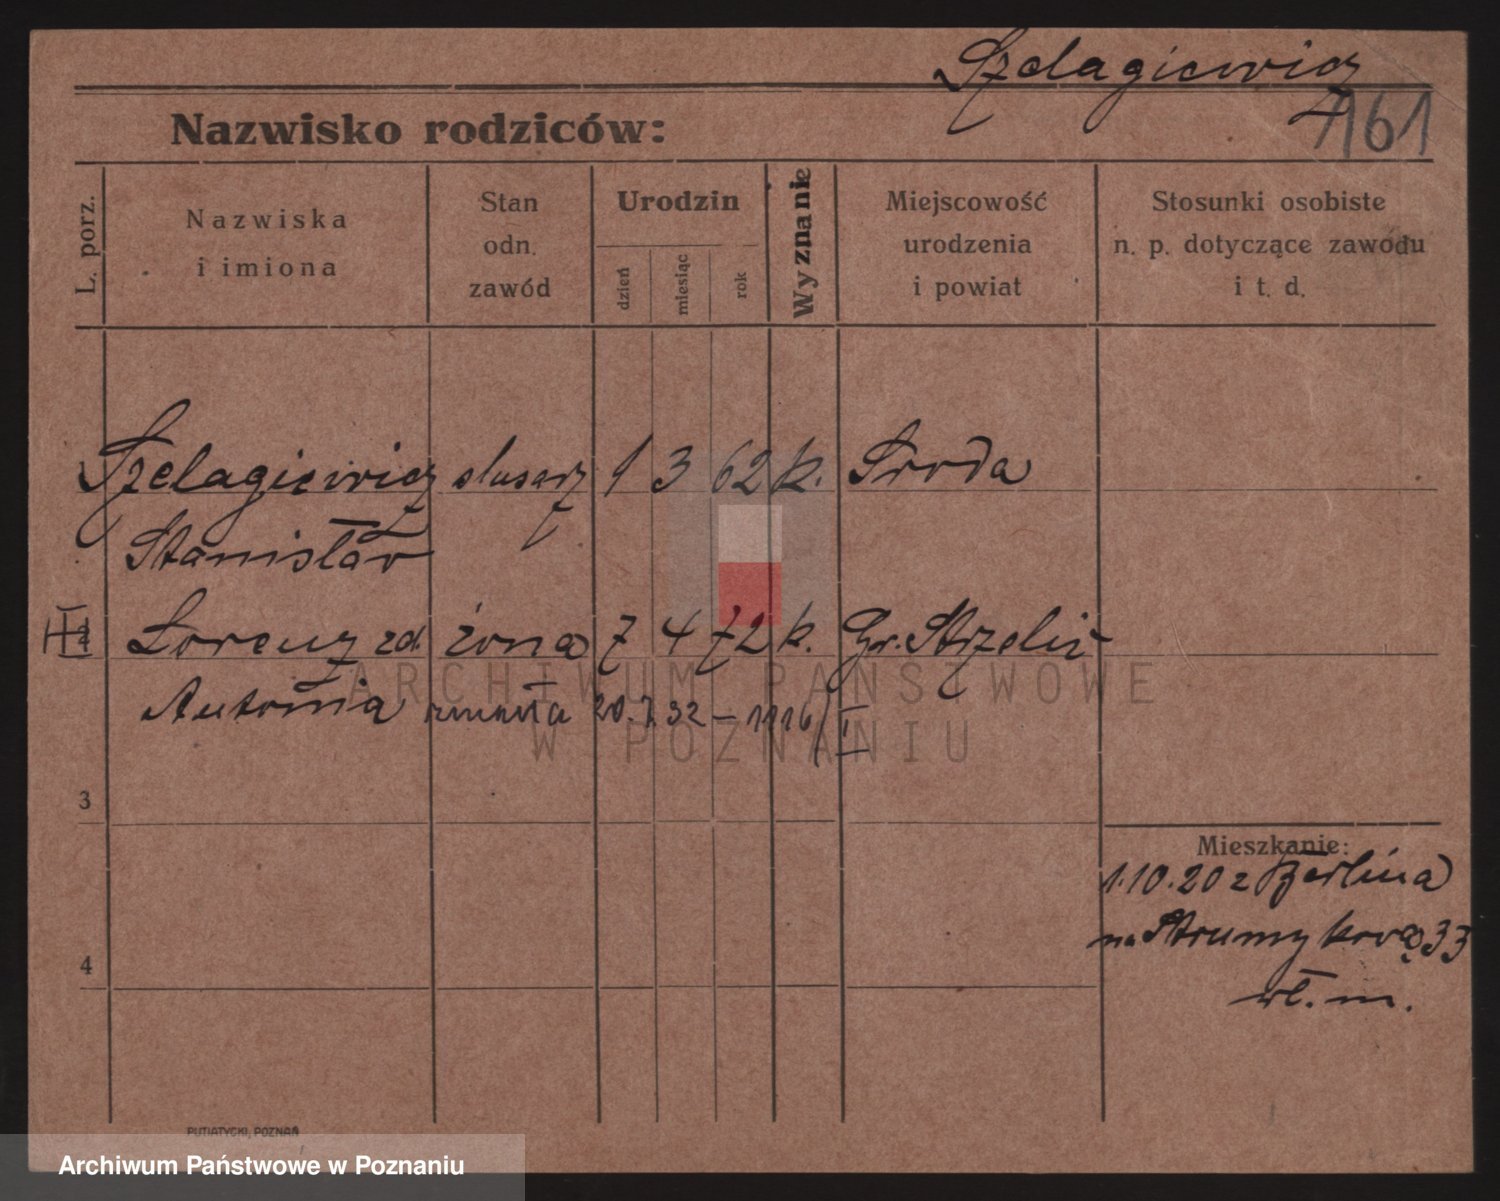 Szelagiewicz
161
Nazwisko rodziców:
L. porz.
Nazwiska
i imiona
Stan
odn.
zawód
Urodzin
dzień
miesiąc
rok
Wyznanie
Miejscowość
urodzenia
i powiat
Stosunki osobiste
n. p. dotyczące zawodu
i t. d.
Szelagiewicz slusarz 1 3 62 k. Sroda
Stanisław
Lorenz zd. żona 7 4 72 k. Gr. Strzeliz
Antonia zmarła 20.7.32 – 1116/I
3
4
Mieszkanie:
1.10.20 z Berlina
na Strumykową 33
wł. m.
PUTIATYCKI, POZNAŃ
ARCHIWUM PAŃSTWOWE
W POZNANIU
Archiwum Państwowe w Poznaniu